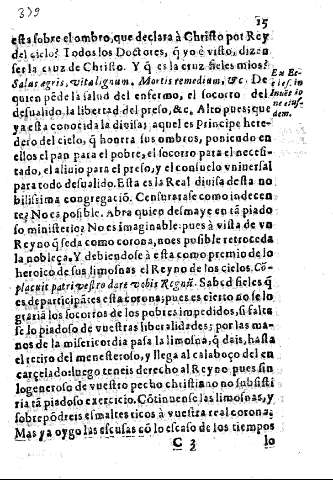 379
15
esta sobre el ombro, que declara à Christo por Rey
del cielo? Todos los Doctores, q̃ yo è visto, dizen
ser la cruz de Christo. Y q̃ es la cruz fieles mios?
Salus ægris, vita lignum. Mortis remedium, &c. De
quien pẽde la salud del enfermo, el socorro del
desualido, la libertad del preso, &c. Alto pues; que
ya esta conocida la diuisa; aquel es Principe here-
dero del cielo, q̃ honra sus ombros, poniendo en
ellos el pan para el pobre, el socorro para el necesi-
tado, el aliuio para el preso, y el consuelo vniuersal
para todo desualido. Esta es la Real diuisa desta no
bilissima congregaciõ. Censurarase como indecen-
te? No es posible. Abra quien desmaye en tã piado
so ministerio? No es imaginable: pues à vista de vn
Reyno q̃ se da como corona, no es posible retroceda
la nobleça, Y debiendose à esta como premio de lo
heroico de sus limosnas el Reyno de los cielos. Cõ-
placuit patri vestro dare vobis Regnũ. Sabed fieles q̃
es de participãtes esta corona; pues es cierto no se lo
grariã los socorros de los pobres impedidos, si faltase
lo piadoso de vuestras liberalidades; por las ma-
nos de la misericordia pasa la limosna, q̃ dais, hasta
el retiro del menesteroso, y llega al calaboço del en
carçelado: luego teneis derecho al Reyno, pues sin
lo generoso de vuestro pecho christiano no subsisti
ria tã piadoso exercicio. Cõtinuense las limosnas, y
sobrepõdreis esmaltes ricos à vuestra real corona.
Mas ya oygo las escusas cõ lo escaso de los tiempos
C 3 lo
Ex Ec-
cles. in
eiusf-
dem.